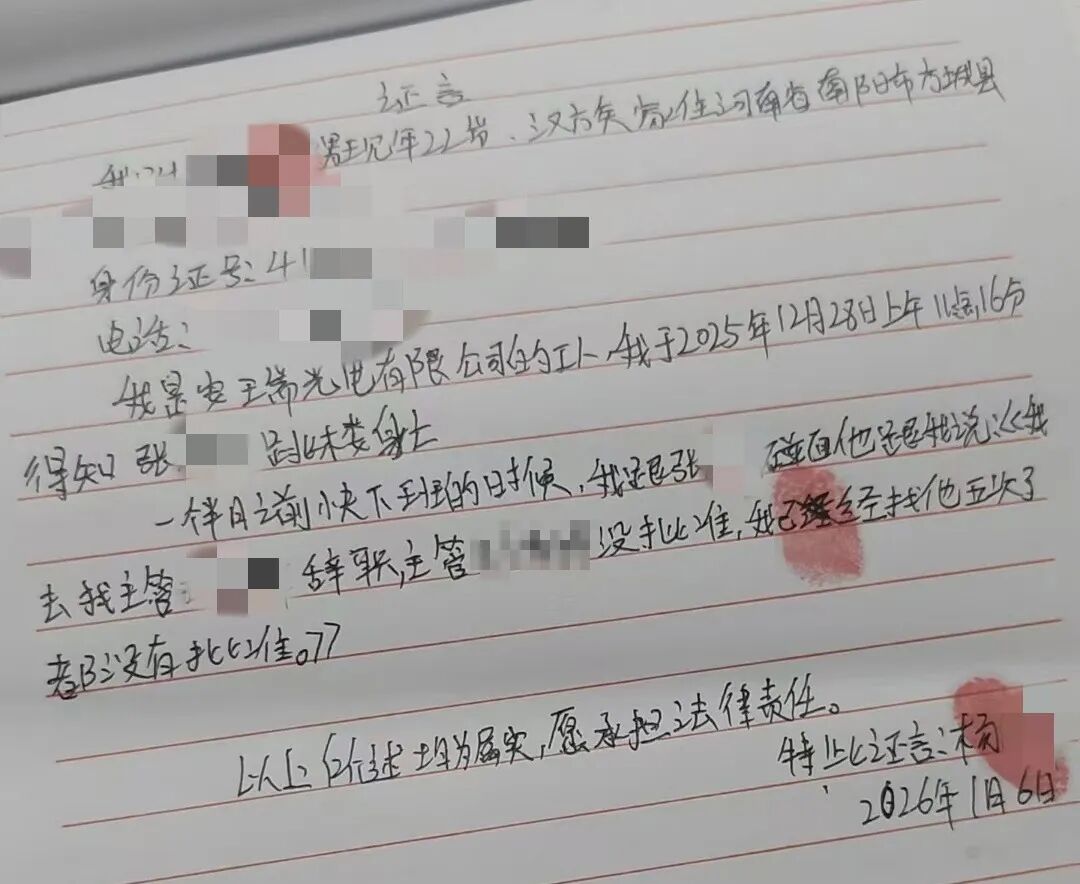 证言
我叫 男现年22岁、汉族家住河南省南阳市方城县
身份证号:41
电话:
我是安玉瑞光电有限公司的工人、我于2025年12月28日上午11点16分
得知张 跳楼身亡
一个半月之前快下班的时候,我跟张 碰面他跟我说:《我
去找主管 辞职,主管 没批准,我已经找他五次了
都没有批准。》
以上 述均为属实,愿承担法律责任。
特此证言:杨
2026年1月6日